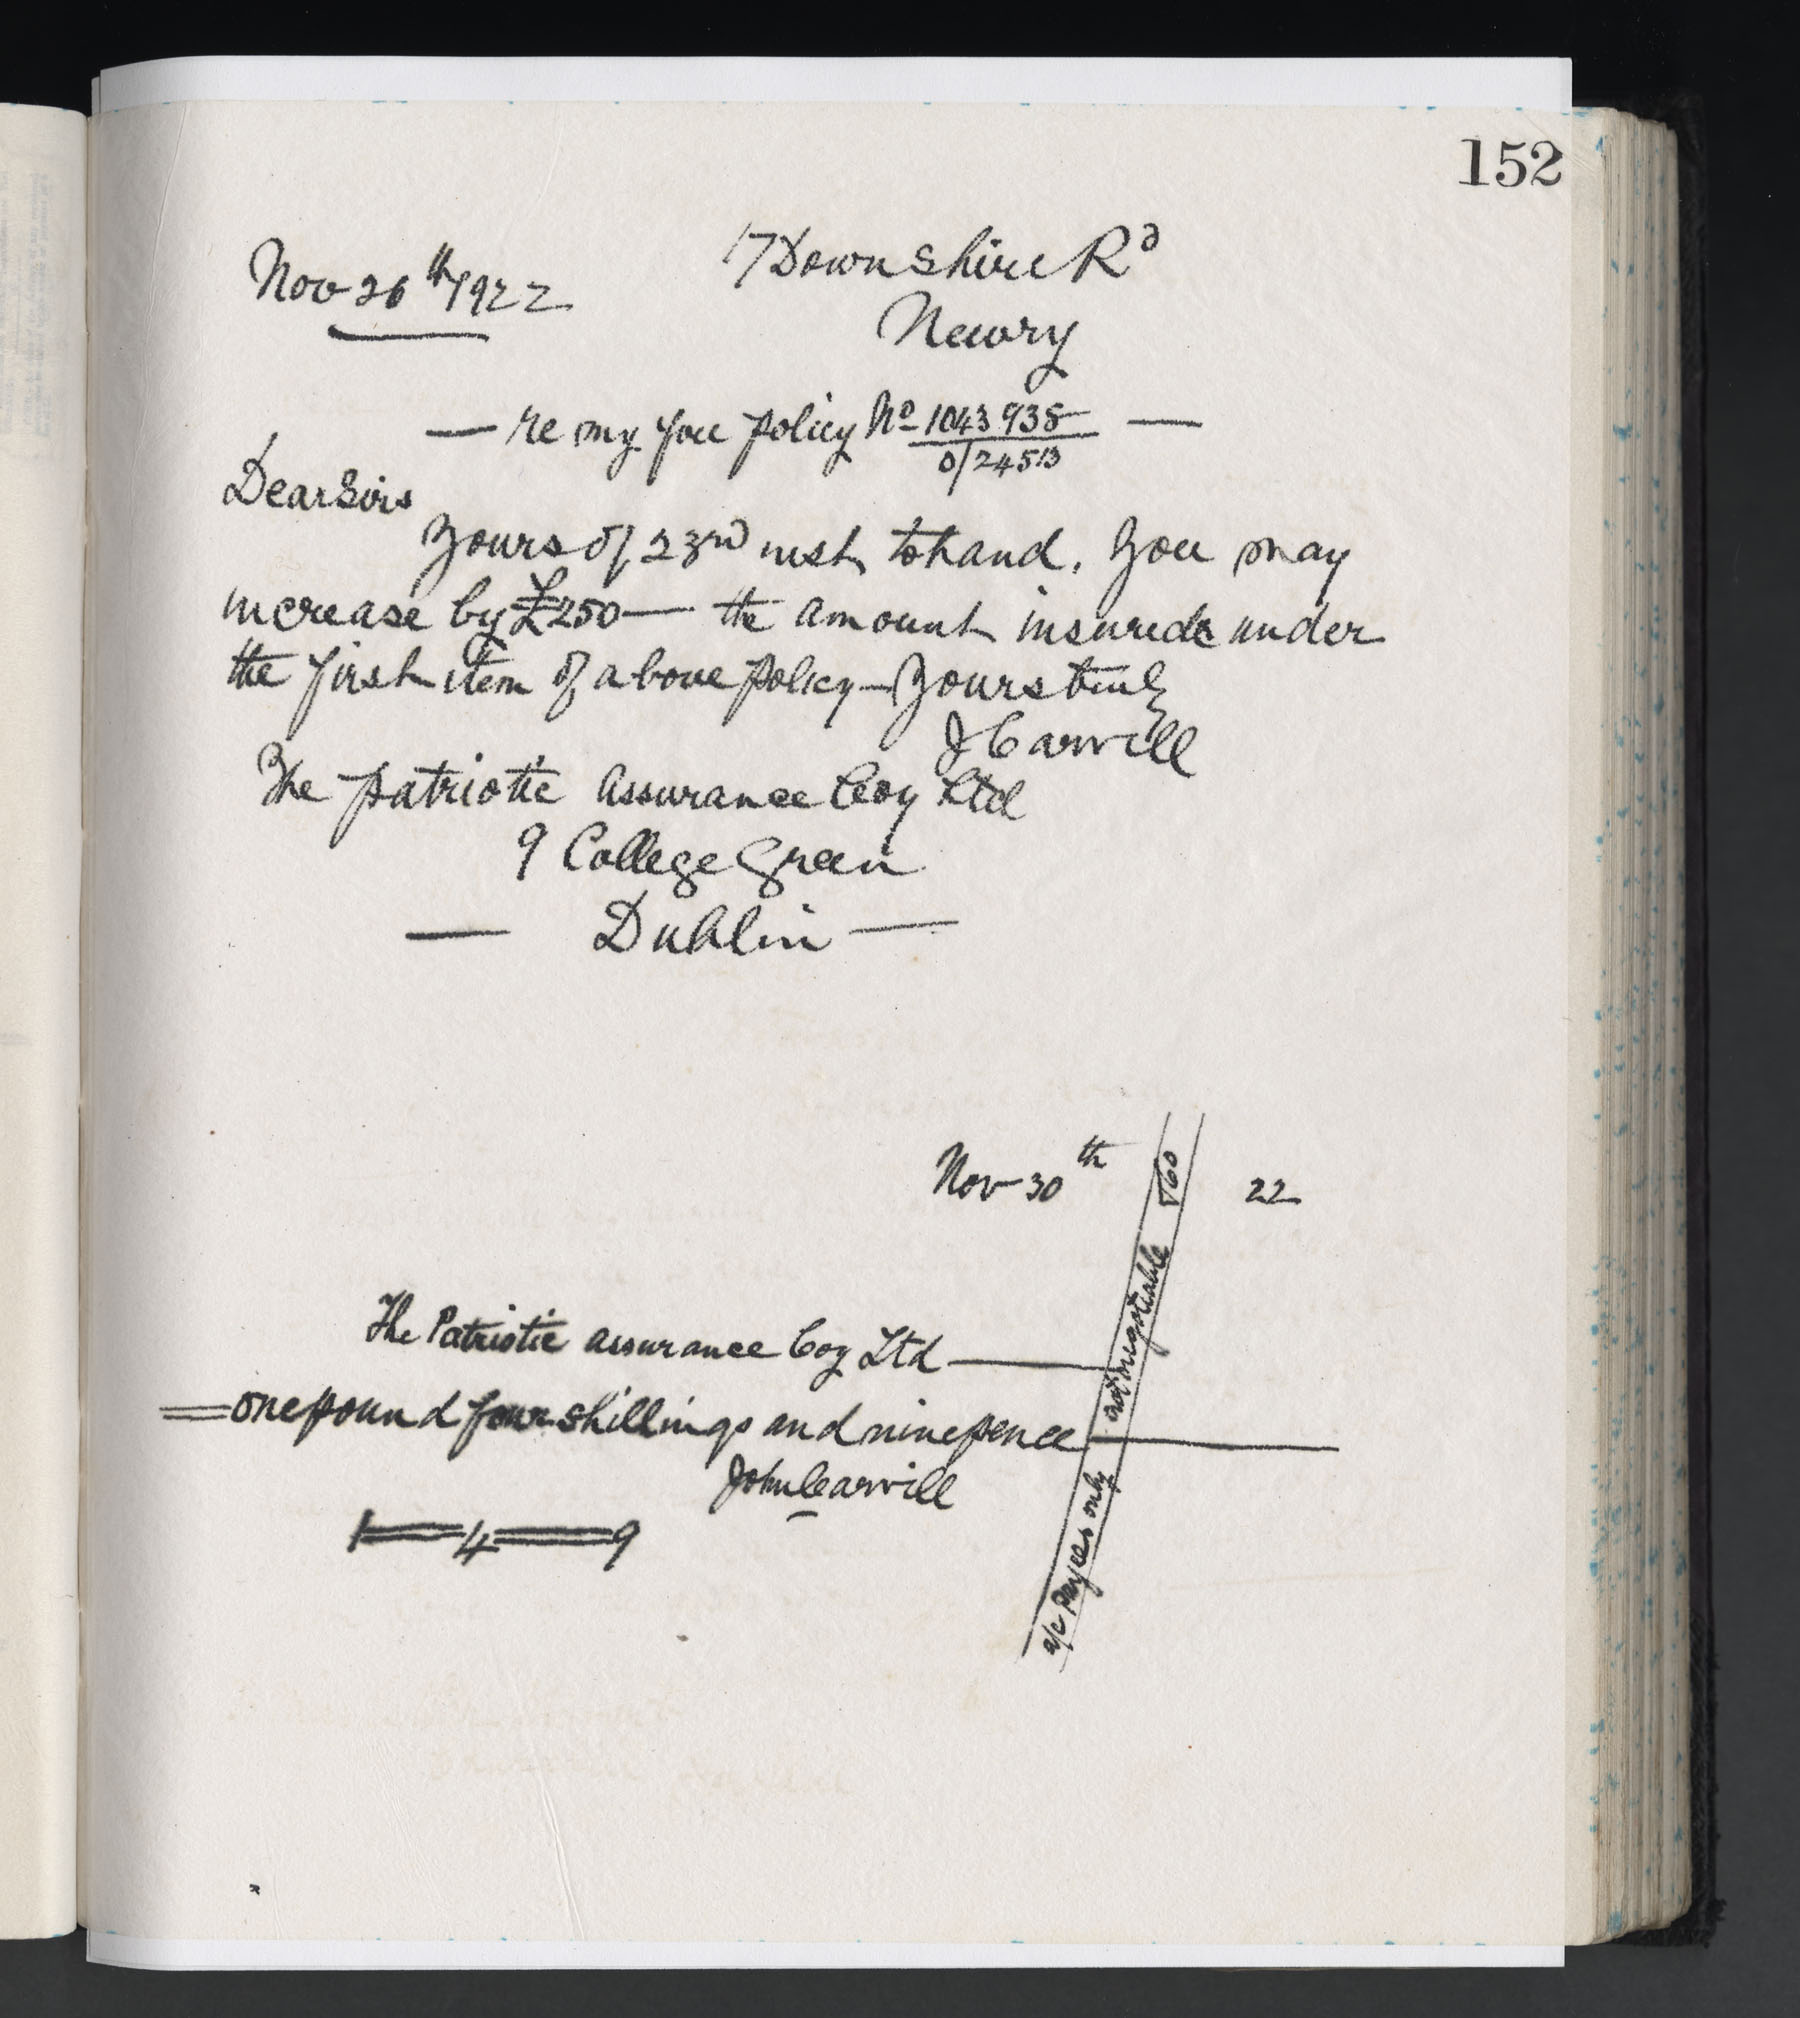 152
17 Downshire Rd
Nov 26th 1922
Newry
— re my your policy No 1043938 —
0/24513
Dear Sirs
Yours of 23rd inst to hand. You may
increase by £250 — the amount insured under
the first item of above policy — Yours truly
J Carvill
The Patriotic Assurance Coy Ltd
9 College Green
— Dublin —
Nov 30th 22
not negotiable & Co
a/c payees only
The Patriotic Assurance Coy Ltd —
= one pound four shillings and ninepence —
John Carvill
1 = 4 = 9